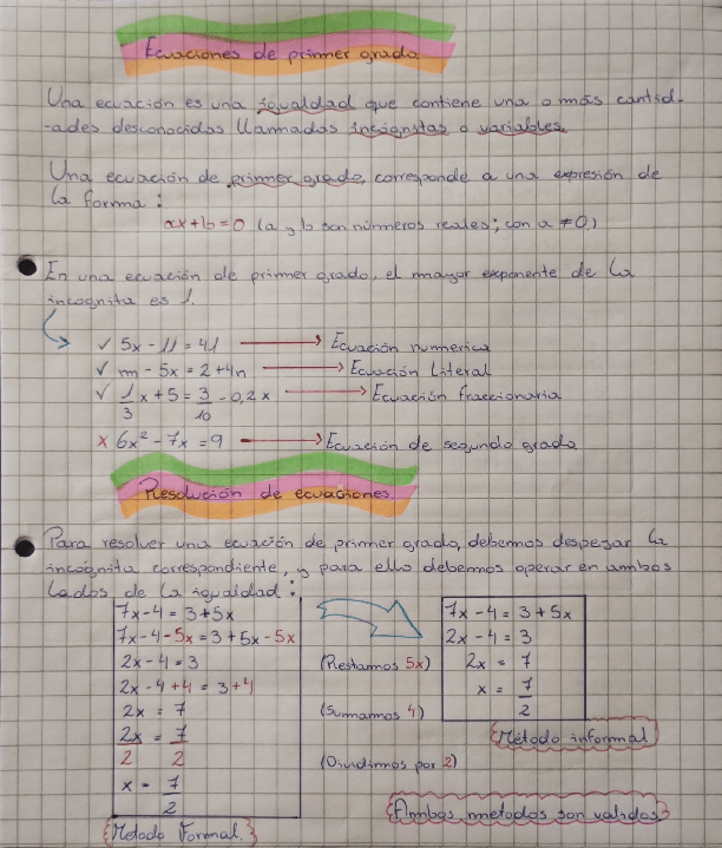 Ecuaciones de primer grado
Una ecuación es una igualdad que contiene una o más cantid-
-ades desconocidas llamadas incógnitas o variables.
Una ecuación de primer grado, corresponde a una expresión de
la forma:
ax+b=0 (a y b son números reales; con a ≠0)
En una ecuación de primer grado, el mayor exponente de la
incognita es 1.
✓ 5x - 11 = 41 → Ecuación numerica
✓ m - 5x = 2+4n → Ecuación Literal
✓ 1/3 x + 5 = 3/10 - 0,2x → Ecuación fraccionaria
x 6x² - 7x = 9 → Ecuación de segundo grado
Resolución de ecuaciones.
Para resolver una ecuación de primer grado, debemos despejar la
incógnita correspondiente, y para ello debemos operar en ambos
lados de la igualdad:
7x-4 = 3+5x
7x-4-5x = 3+5x-5x
2x-4=3 (Restamos 5x)
2x-4+4 = 3+4
2x = 7 (Sumamos 4)
2x/2 = 7/2 (Dividimos por 2)
x = 7/2
Metodo Formal.
7x-4 = 3+5x
2x-4 = 3
2x = 7
x = 7/2
Método informal
Ambos metodos son validos